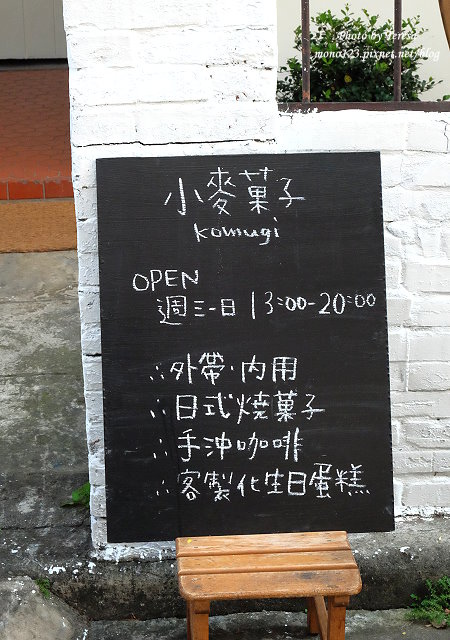 Photo by Teresa
mono123.pixnet.net/blog
小麥菓子
komugi
OPEN
週三-日 13:00-20:00
∴外帶·內用
∴日式燒菓子
∴手沖咖啡
∴客製化生日蛋糕